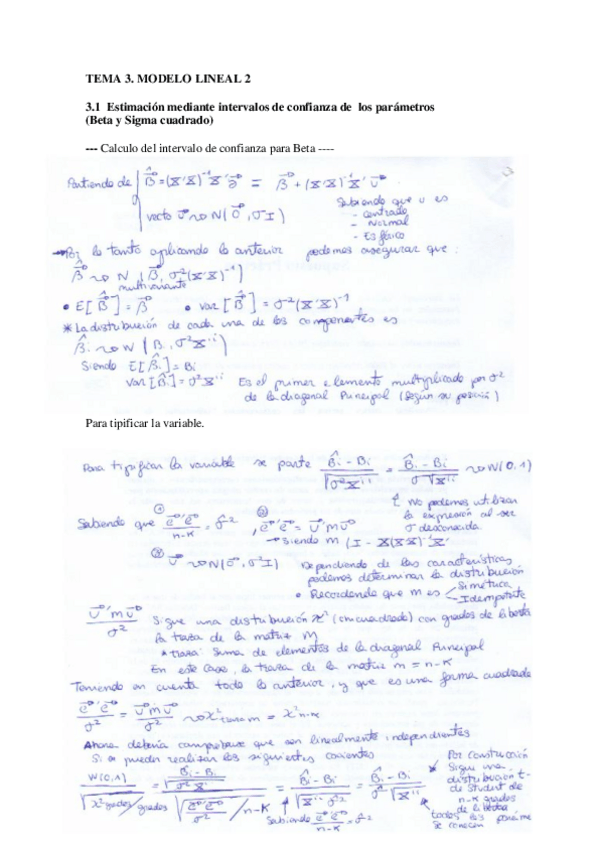 TEMA 3. MODELO LINEAL 2
3.1 Estimación mediante intervalos de confianza de los parámetros
(Beta y Sigma cuadrado)
--- Calculo del intervalo de confianza para Beta ----
Partiendo de β̂ = (X'X)⁻¹X' = β + (X'X)⁻¹X'U
vector U ~> N(0, σI)
Sabiendo que u es
- Centrado
- Normal
- Esférico
→ Por lo tanto aplicando lo anterior podemos asegurar que:
β̂ ~> N (β, σ²(X'X)⁻¹)
multivariante
• E[β̂] = β • var[β̂] = σ²(X'X)⁻¹
* La distribución de cada una de las componentes es
β̂i ~> N (βi, σ²Xⁱⁱ)
Siendo E[β̂i] = Bi
Var[β̂i] = σ²Xⁱⁱ Es el primer elemento multiplicado por σ²
de la diagonal Principal (según su posición)
Para tipificar la variable.
Para tipificar la variable se parte (B̂i - Bi)/√(σ²Xⁱⁱ) = (B̂i - Bi)/(σ√Xⁱⁱ) ~> N(0,1)
No podemos utilizar
la expresión al ser
σ desconocida.
Sabiendo que ① e'e/(n-k) = σ̂², ② e'e = U'MU
→ siendo M (I - X(X'X)⁻¹X'
U ~> N(0, σ²I) Dependiendo de las características
podemos determinar la distribución
• Recordando que M es Simétrica
Idempotente
U'MU/σ² Sigue una distribución X² (chi cuadrado) con grados de libertad
la traza de la matriz M
* traza: Suma de elementos de la diagonal Principal
En este caso, la traza de la matriz M = n-k
Teniendo en cuenta todo lo anterior, y que es una forma cuadrada
e'e/σ² = U'MU/σ² ~> X² traza M = X² n-k
Ahora debería comprobarse que son linealmente independientes
Si se pueden realizar los siguientes cocientes
N(0,1)/√(X² grados/grados) = ((B̂i - Bi)/√(σ²Xⁱⁱ))/√((e'e/σ²)/n-k) = (B̂i - Bi)/√(Xⁱⁱ σ̂²) = (B̂i - Bi)/(σ̂√Xⁱⁱ)
Sabiendo e'e/(n-k) = σ̂²
Por construcción
Sigue una
distribución t-
de Student de
n-k grados
de libertad
todos los
se conocen